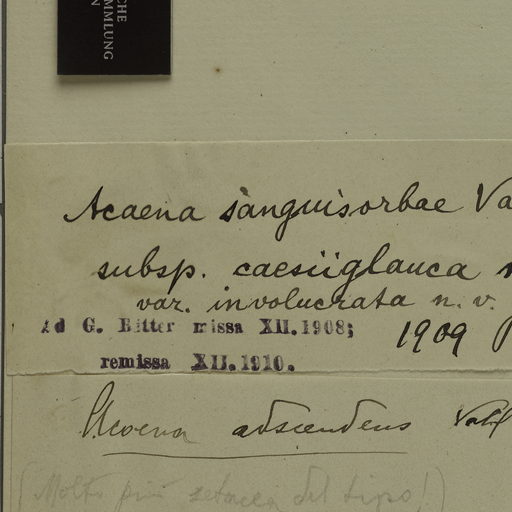 CHE
MMLUNG
N
Acaena sanguisorbae Va
subsp. caesiiglauca
var. involucrata n. v.
Ad G. Bitter missa XII.1908;
1909
remissa XII.1910.
Acaena adscendens Vahl
(Molto più setacea del tipo!)